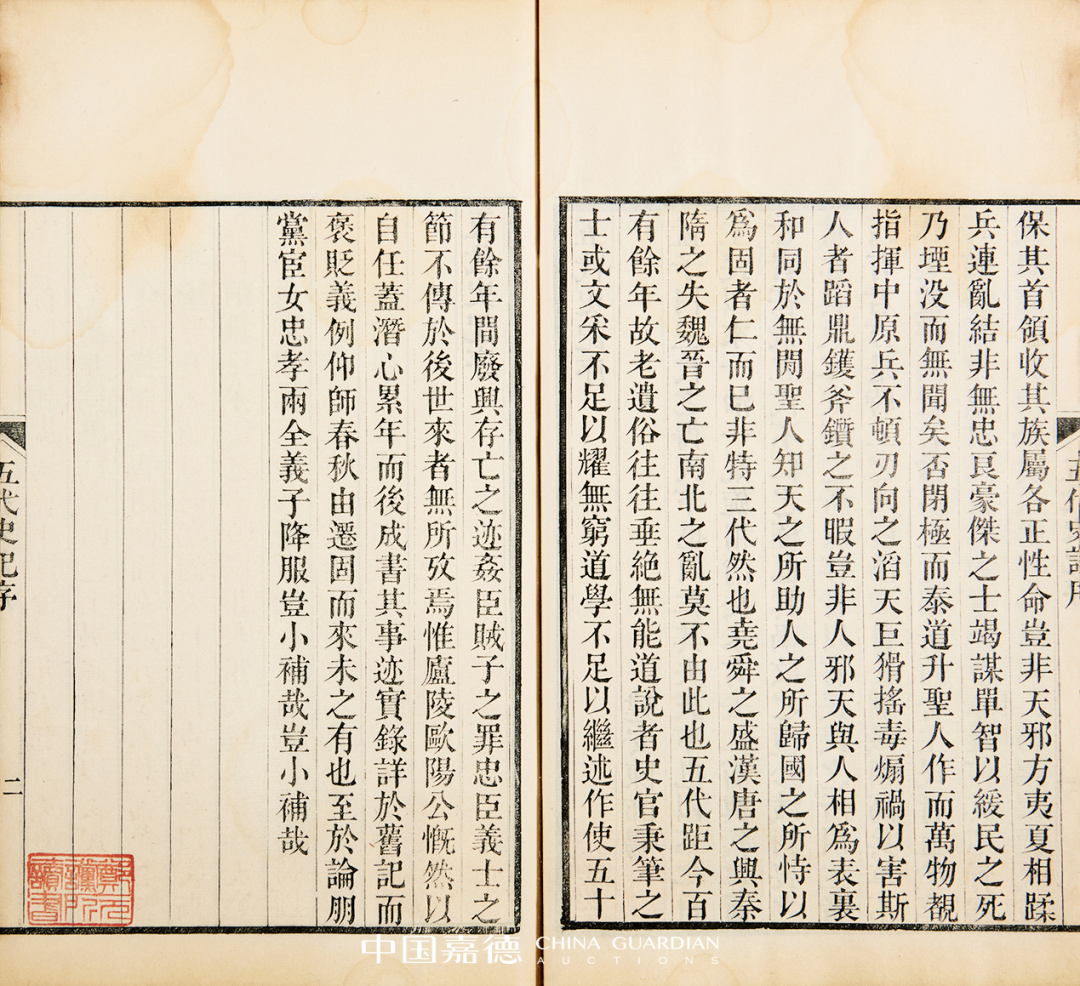 保其首領收其族屬各正性命豈非天邪方夷夏相蹂
兵連亂結非無忠良豪傑之士竭謀單智以緩民之死
乃堙没而無聞矣否閉極而泰道升聖人作而萬物覩
指揮中原兵不頓刃向之滔天巨猾搖毒煽禍以害斯
人者蹈鼎鑊斧鑕之不暇豈非人邪天與人相爲表裏
和同於無閒聖人知天之所助人之所歸國之所恃以
爲固者仁而已非特三代然也堯舜之盛漢唐之興秦
隋之失魏晉之亡南北之亂莫不由此也五代距今百
有餘年故老遺俗往往垂絶無能道說者史官秉筆之
士或文采不足以耀無窮道學不足以繼述作使五十
有餘年間廢興存亡之迹姦臣賊子之罪忠臣義士之
節不傳於後世來者無所攷焉惟廬陵歐陽公慨然以
自任蓋潛心累年而後成書其事迹實錄詳於舊記而
褒貶義例仰師春秋由遷固而來未之有也至於論朋
黨宦女忠孝兩全義子降服豈小補哉豈小補哉
五代史記序
二
五代史記序
中国嘉德 CHINA GUARDIAN
AUCTIONS